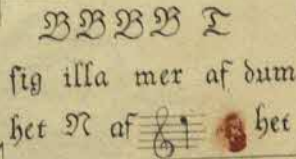 B B B B T
sig illa mer af dum
het N af het